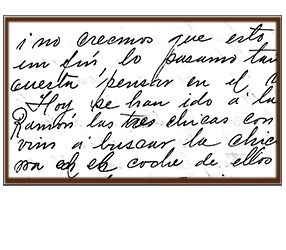 i no creemos que esto
en fin, lo pasamo tan
cuesta, pensar en el
Hoy se han ido a la
Ramón las tres chicas con
vino a buscar la chic
na en el coche de ellos